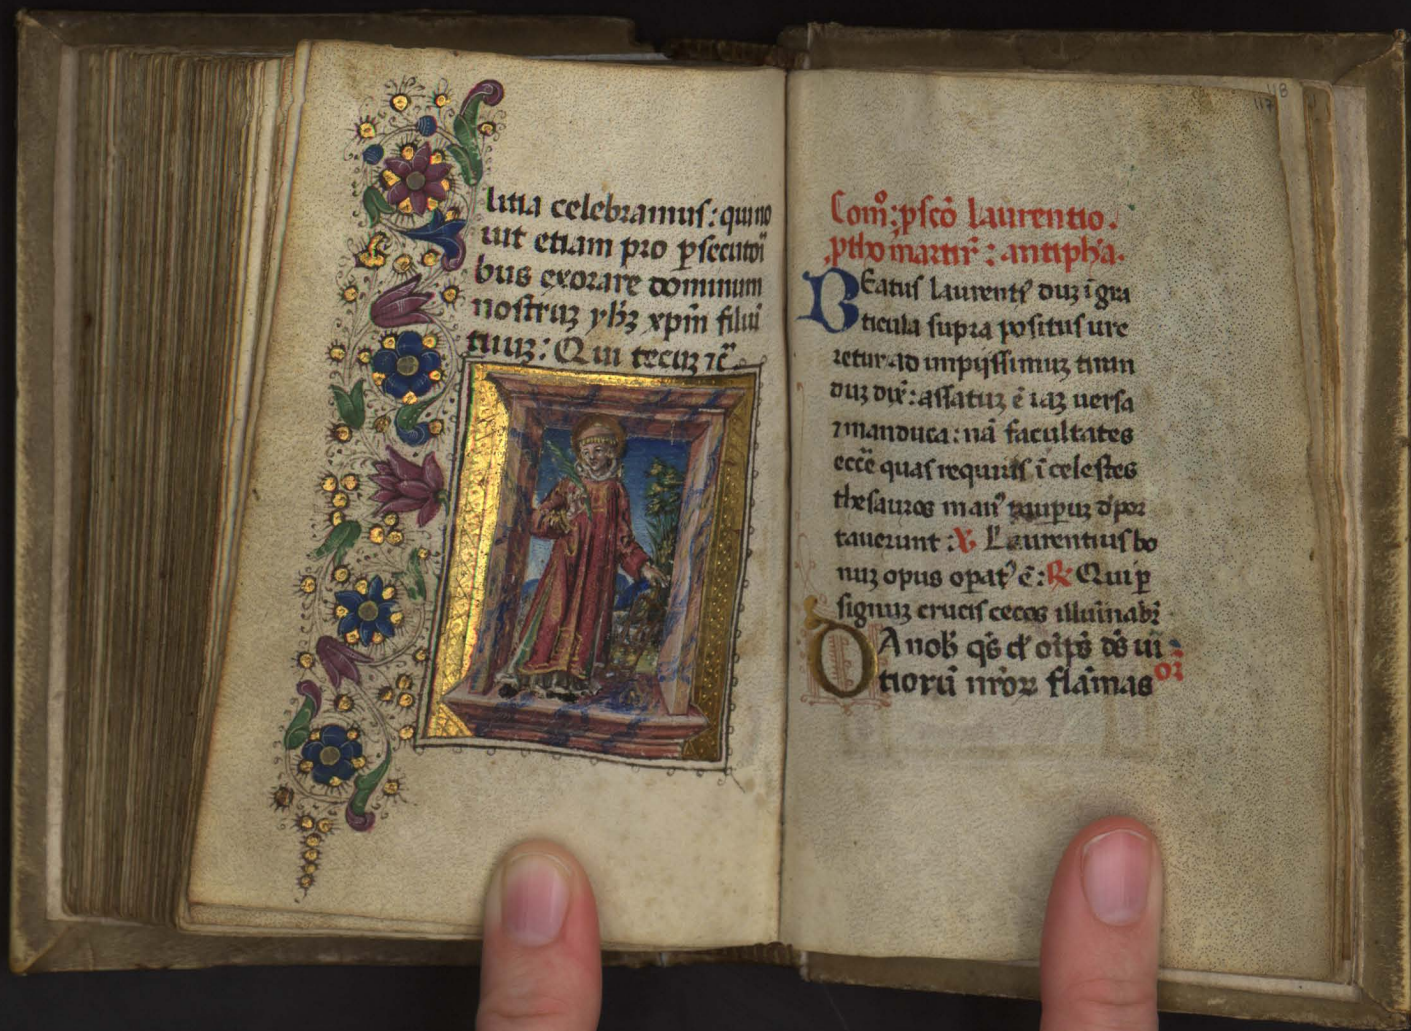 litia celebramus: qui no
uit etiam pro ꝑsecutoꝛi
bus exorare dominum
nostruꝫ yħꝫ xp̄m filiū
tuuꝫ: Qui tecuꝫ ⁊c̄
118
117
Com̄o: ꝑ scō laurentio.
ꝓtho martir̄: antiph̄a.
BEatus laurentꝰ duꝫ ī gra
ticula supra positus ure
retur ad impijssimuꝫ tiran
duꝫ dix̄: assatuꝫ ē iaꝫ uersa
⁊ manduca: nā facultates
eccē quas requiris ī celestes
thesauros manꝰ pauperuꝫ depor
tauerunt: V. Laurentius bo
nuꝫ opus opatꝰ ē: R Qui ꝑ
signuꝫ crucis cecos illuīnabꝫ
DA nob̄ qs̄ oīps̄ ds̄ ui
tioꝝ nr̄oꝝ flāmas
oꝛ